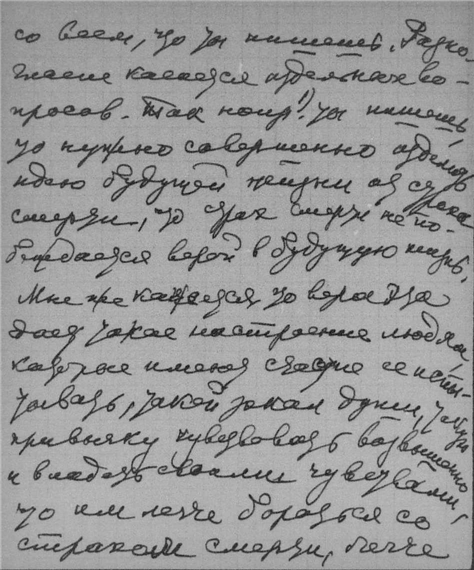 со всем, что ты пишешь. Разно-
гласие касается отдельных во-
просов. Так напр. 1) ты пишешь
что нужно совершенно отделить
идею будущей жизни от страха
смерти, что страх смерти не по-
беждается верой в будущую жизнь.
Мне же кажется что вера эта
дает такое настроение людям
которые имеют счастие ее испы-
тывать, такой закал души, такую
привычку чувствовать возвышенно
и владеть своими чувствами,
что им легче бороться со
страхом смерти, легче